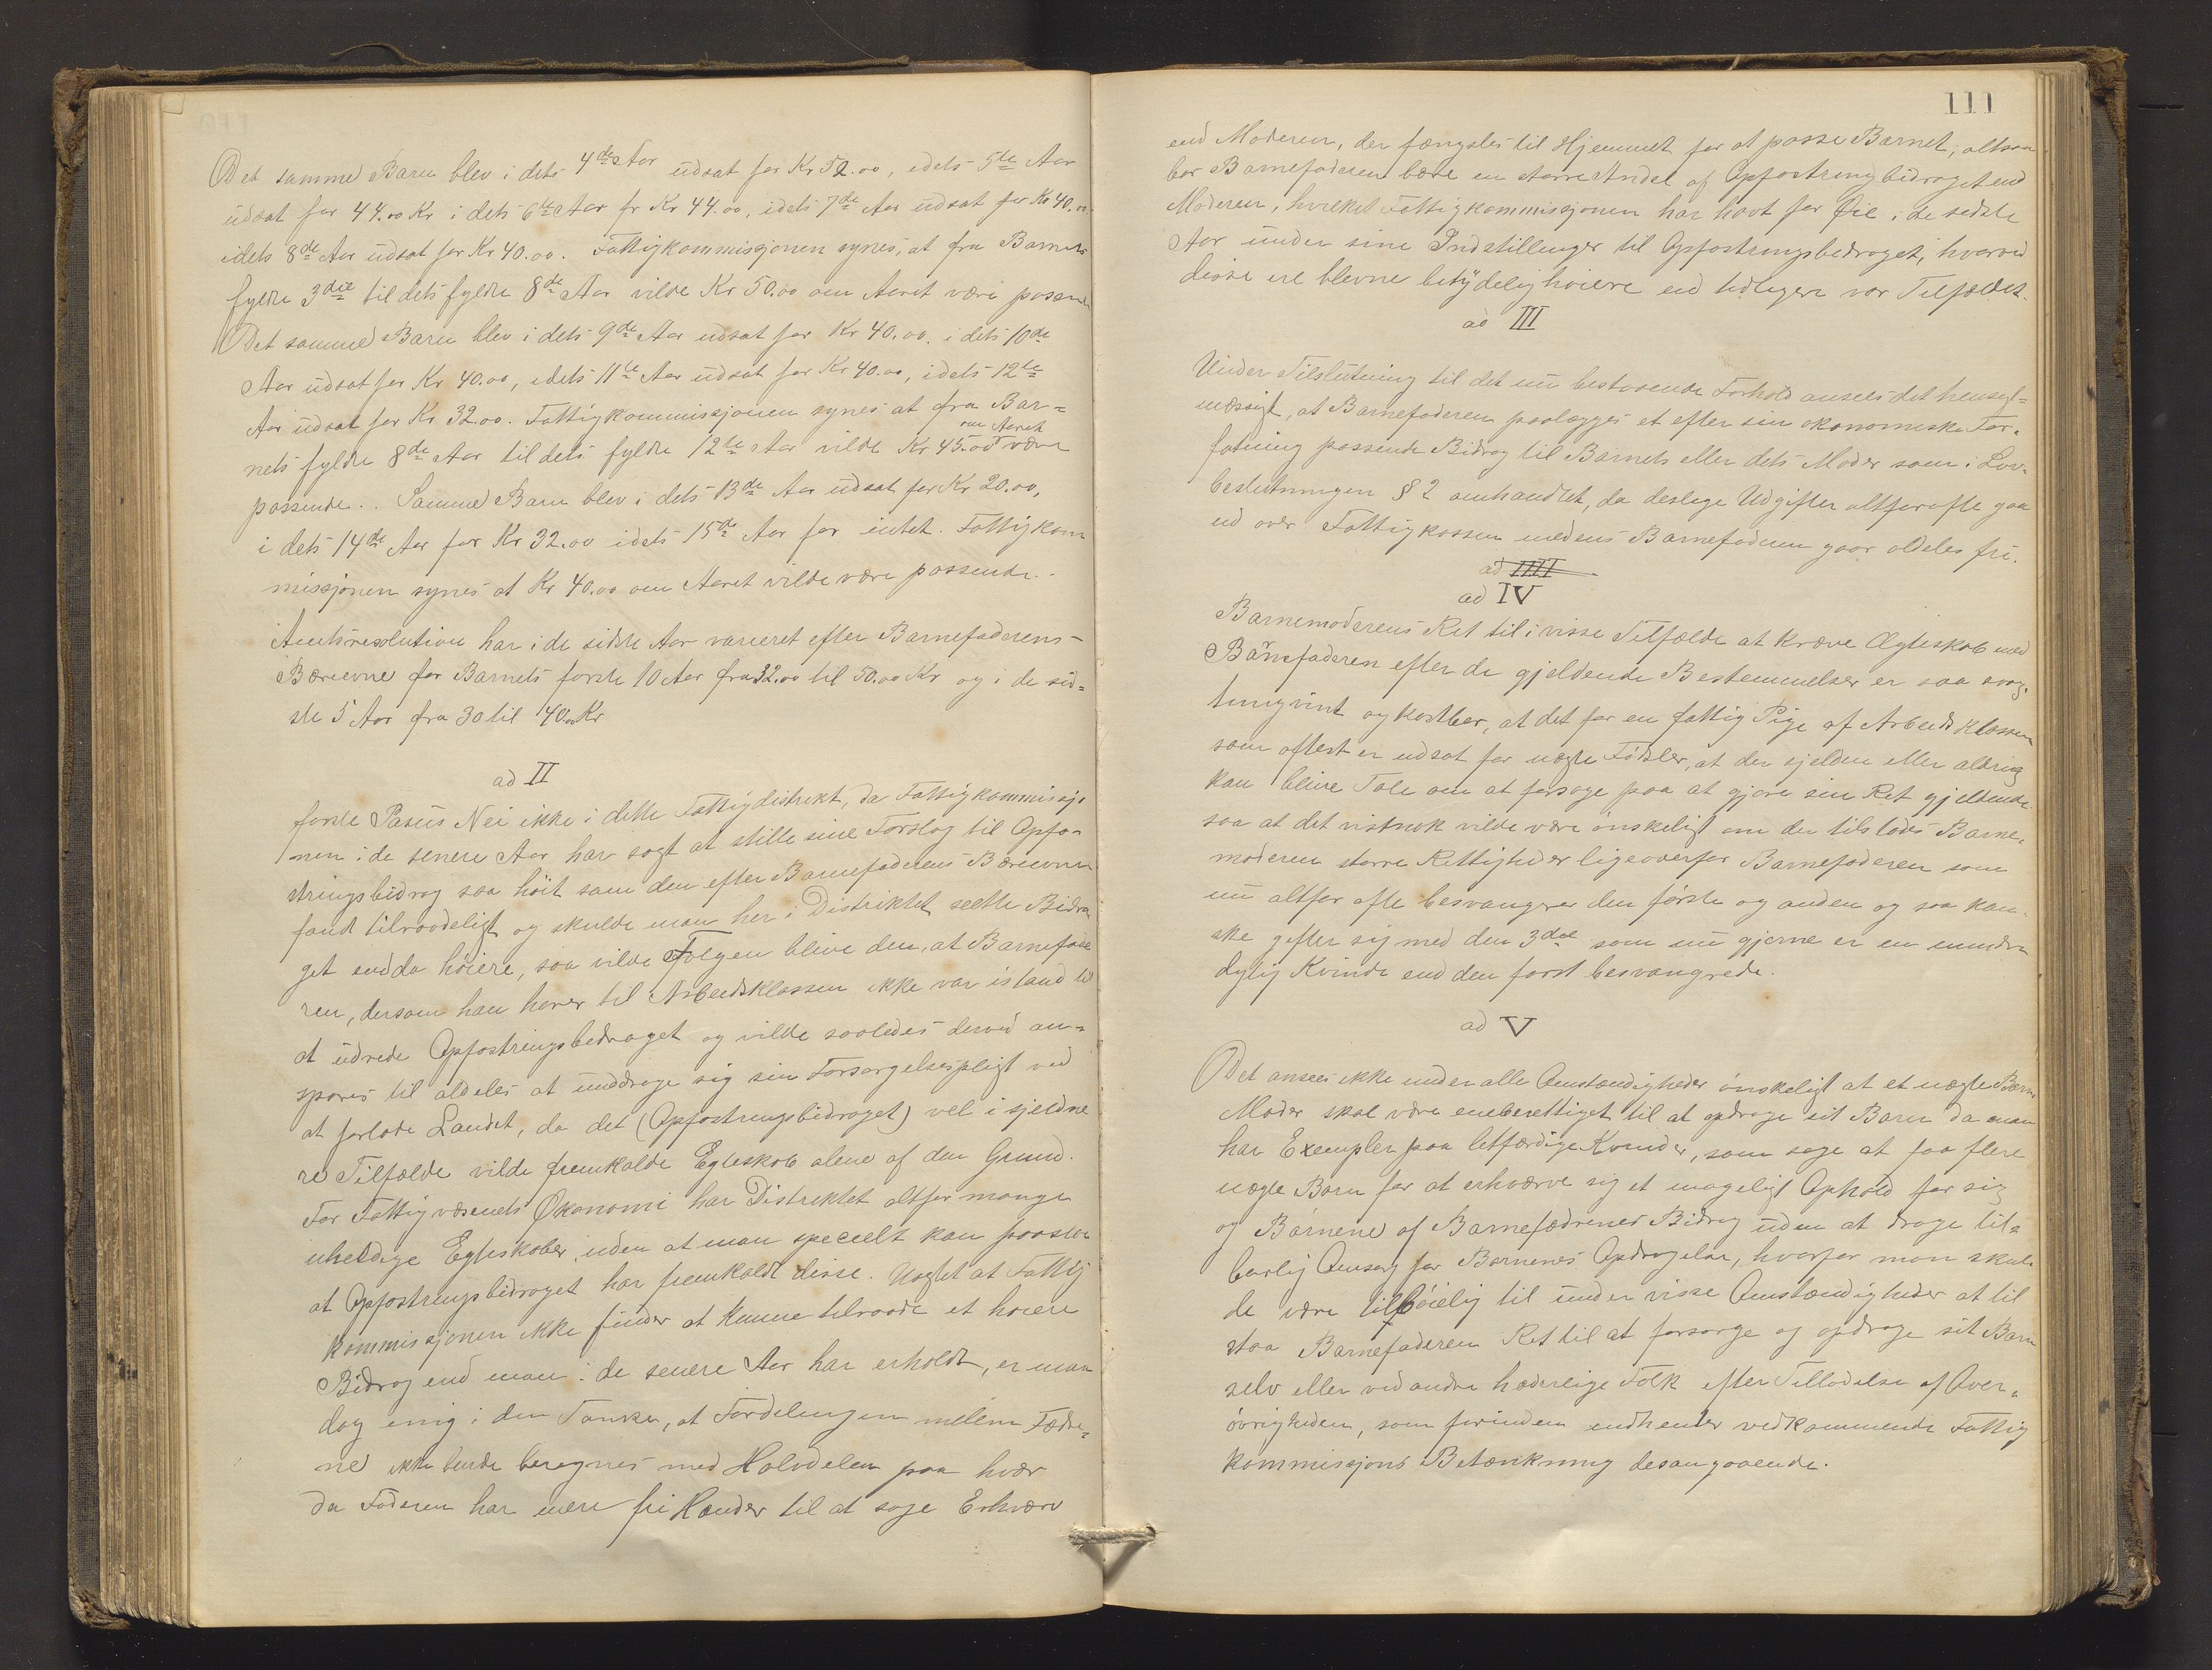 Det samme Barn blev i dets 4de Aar udsat for Kr 52.00, idets 5te Aar
udsat for 44.00 Kr i dets 6te Aar fr Kr 44.00, idets 7de Aar udsat for Kr 40.00
idets 8de Aar udsat for Kr 40.00. Fattigkommissjonen synes, at fra Barnets
fyldte 3die til dets fyldte 8de Aar vilde Kr 50.00 om Aaret være passende
Det samme Barn blev i dets 9de Aar udsat for Kr 40.00, i dets 10de
Aar udsat for Kr 40.00, idets 11te Aar udsat for Kr 40.00, idets 12te
Aar udsat for Kr 32.00. Fattigkommissjonen synes at fra Bar=
nets fyldte 8de Aar til dets fyldte 12te Aar vilde Kr 45.00 om Aaret være
passende. Samme Barn blev i dets 13de Aar udsat for Kr 20.00,
i dets 14de Aar for Kr 32.00 idets 15de Aar for intet. Fattigkom
missjonen synes at Kr 40.00 om Aaret vilde være passende.
Amtsresolution har i de sidste Aar varieret efter Barnefaderens
Bæreevne for Barnets første 10 Aar fra 32.00 til 50.00 Kr og i de sid=
ste 5 Aar fra 30 til 40.00 Kr
ad II
første Pasus Nei ikke i dette Fattigdistrikt, da Fattigkommissjo
nen i de senere Aar har søgt at stille sine Forslag til Opfo=
stringsbidrag saa høit som den efter Barnefaderens Bæreevne
fandt tilraadeligt og skulde man her i Distriktet sætte Bidra
get endda høiere, saa vilde Følgen blive den, at Barnefade
ren, dersom han hører til Arbeidsklassen ikke var istand til
at udrede Opfostringsbidraget og vilde saaledes derved an=
spores til aldeles at unddrage sig sin Forsørgelsespligt ved
at forlade Landet, da det (Opfostringsbidraget) vel i sjeldne
re Tilfælde vilde fremkalde Egteskab alene af den Grund.
For Fattigvæsenets Økonomi har Distriktet altfor mange
uheldige Egteskaber, uden at man specielt kan paastaa
at Opfostringsbidraget har fremkaldt disse. Uagtet at Fattig
kommissjonen ikke finder at kunne tilraade et høiere
Bidrag end man i de senere Aar har erholdt, er man
dog enig i den Tanke, at Fordelingen mellem Fædre=
ne ikke burde beregnes med Halvdelen paa hver
da Faderen har mere fri Hænder til at søge Erhverv
111
end Moderen, der fængsles til Hjemmet for at passe Barnet, altsaa
bør Barnefaderen bære en større Andel af Opfostringsbidraget end
Moderen, hvilket Fattigkommissjonen har havt for Øie i de sidste
Aar under sine Indstillinger til Opfostringsbidraget, hvorved
disse ere blevne betydelig høiere end tidligere var Tilfældet.
ad III
Under Tilslutning til det nu bestaaende Forhold ansees det hensigt=
mæssigt, at Barnefaderen paalægges et efter sin økonomiske For=
fatning passende Bidrag til Barnets eller dets Moder som i Lov=
beslutningen § 2 omhandlet, da deslige Udgifter altforofte gaa
ud over Fattigkassen medens Barnefaderen gaar aldeles fri.
ad IIII
ad IV
Barnemoderens Ret til i visse Tilfælde at kræve Ægteskab med
Barnefaderen efter de gjeldende Bestemmelser er saa vog=
tungvint og kostbar, at det for en fattig Pige af Arbeidsklassen
som oftest er udsat for uægte Fødsler, at der sjelden eller aldrig
kan blive Tale om at forsøge paa at gjøre sin Ret gjeldende
saa at det vistnok vilde være ønskeligt om der tilstodes Barne=
moderen større Rettigheder ligeoverfor Barnefaderen som
nu altfor ofte besvangrer den første og anden og saa kan=
ske gifter sig med den 3die som nu gjerne er en mindre
dygtig Kvinde end den først besvangrede.
ad V
Det ansees ikke under alle Omstændigheder ønskeligt at et uægte Barns
Moder skal være eneberettiget til at opdrage sit Barn da man
har Exempler paa letfærdige Kvinder, som søge at faa flere
uægte Børn for at erhverve sig et mageligt Ophold for sig
og Børnene af Barnefædrenes Bidrag uden at drage til=
børlig Omsorg for Børnenes Opdragelse, hvorfor man skul=
de være tilbøielig til under visse Omstændigheder at til
staa Barnefaderen Ret til at forsørge og opdrage sit Barn
selv eller ved andre hæderlige Folk efter Tilladelse af Over=
øvrigheden, som forinden indhenter vedkommende Fattig
kommissjons Betænkning desangaaende.